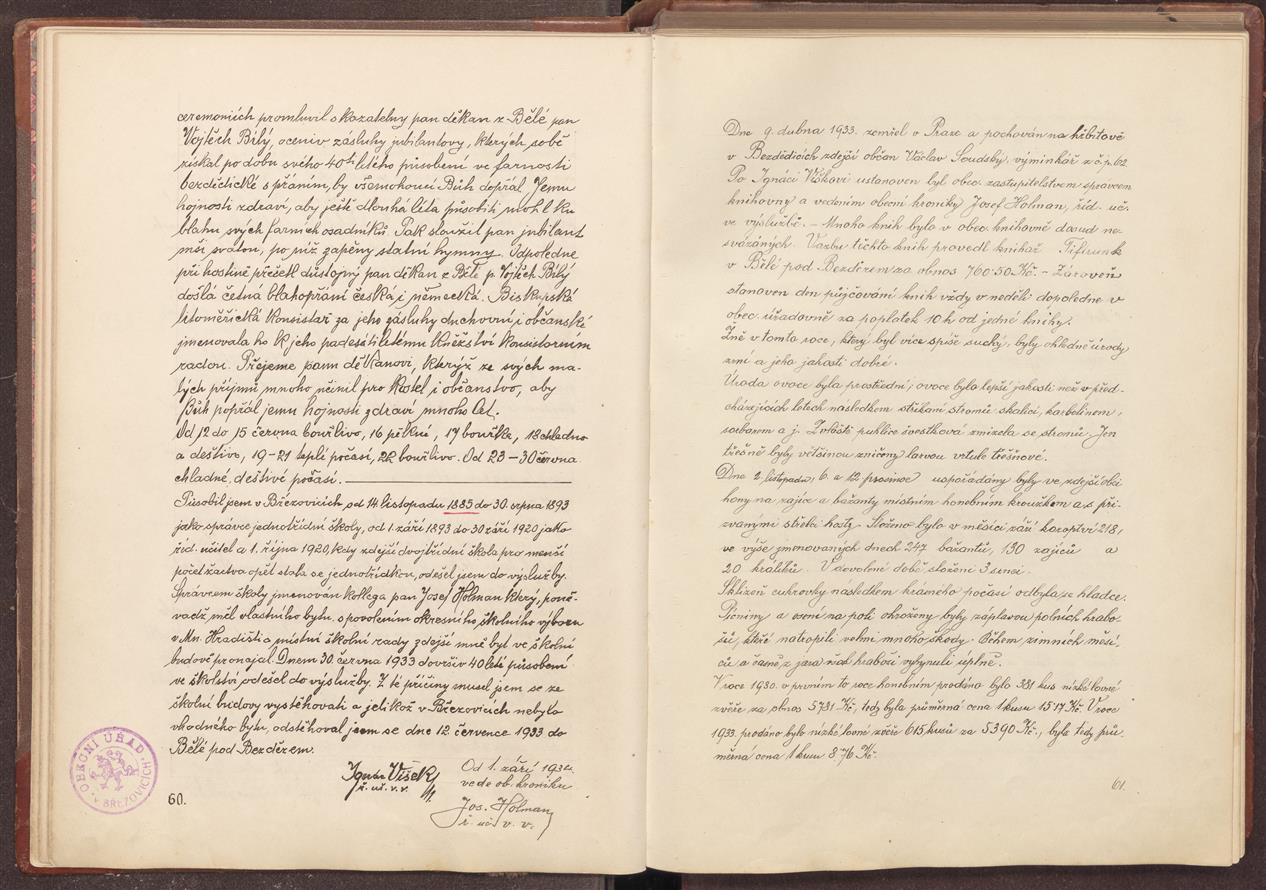 ceremoniích promluvil s kazatelny pan děkan z Bělé pan
Vojtěch Bílý, oceniv zásluhy jubilantovy, kterých sobě
získal po dobu svého 40ti létého působení ve farnosti
bezdědické s přáním, by všemohoucí Bůh dopřál Jemu
hojnosti zdraví, aby ještě dlouhá léta působiti mohl ku
blahu svých farních osadníků. Pak sloužil pan jubilant
mši svatou, po níž zapěny statní hymny. Odpoledne
při hostině přečetl důstojný pan děkan z Bělé p. Vojtěch Bílý
došlá četná blahopřání česká i německá. Biskupská
litoměřická konsistoř za jeho zásluhy duchovní i občanské
jmenovala ho k jeho padesátiletému kněžství konsistorním
radou. Přejeme panu děkanovi, kterýž ze svých ma-
lých příjmů mnoho učinil pro kostel i občanstvo, aby
Bůh popřál jemu hojnosti zdraví mnoho let.
Od 12 do 15 června bouřlivo, 16 pěkné, 17 bouřka, 18 chladno
a deštivo, 19-21 teplé počasí, 22 bouřlivo. Od 23-30 června
chladné, deštivé počasí.
Působil jsem v Březovicích od 14 listopadu 1885 do 30. srpna 1893
jako správce jednotřídní školy, od 1. září 1893 do 30 září 1920 jako
říd. učitel a 1. října 1920, kdy zdejší dvojtřídní škola pro menší
počet žactva opět stala se jednotřídkou, odešel jsem do výslužby.
Správcem školy jmenován kollega pan Josef Holman který, poně-
vadž měl vlastního bytu, s povolením okresního školního výboru
v Mn. Hradišti a místní školní rady zdejší mně byt ve školní
budově pronajal. Dnem 30. června 1933 dovršiv 40 leté působení
ve školství odešel do výslužby. Z té příčiny musel jsem se ze
školní budovy vystěhovati a jelikož v Březovicích nebylo
vhodného bytu, odstěhoval jsem se dne 12 července 1933 do
Bělé pod Bezdězem.
Ignác Víšek
ř. uč. v. v.
Od 1. září 193
vede ob. kroniku
Jos. Holman
ř. uč. v. v.
OBECNÍ ÚŘAD
v BŘEZOVICÍCH
60.
Dne 9. dubna 1933. zemřel v Praze a pochován na hřbitově
v Bezdědicích zdejší občan Václav Soudský, výminkář z č.p. 62
Po Ignáci Víškovi ustanoven byl obec. zastupitelstvem správcem
knihovny a vedením obecní kroniky Josef Holman, říd. uč.
ve výslužbě. - Mnoho knih bylo v obec. knihovně dosud ne-
svázaných. Vazbu těchto knih provedl knihař Pifrunk
v Bělé pod Bezdězem za obnos 760·50 Kč. - Zároveň
stanoven den půjčování knih vždy v neděli dopoledne v
obec. úřadovně za poplatek 10 h od jedné knihy.
Žně v tomto roce, který byl více spíše suchý, byly ohledně úrody
zrní a jeho jakosti dobré.
Úroda ovoce byla prostřední; ovoce bylo lepší jakosti než v před-
cházejících letech následkem stříkání stromů skalicí, karbolinem,
sorbarem a j. Zvláště puklice švestková zmizela se stromů. Jen
třešně byly většinou zničeny larvou vrtule třešňové.
Dne 2. listopadu, 6. a 12 prosince uspořádány byly ve zdejší obci
hony na zajíce a bažanty místním honebním kroužkem a s při-
zvanými střelci hosty. Složeno bylo v měsíci září koroptví 218,
ve výše jmenovaných dnech 247 bažantů, 130 zajíců a
20 králíků. V dovolené době složeni 3 srnci.
Sklizeň cukrovky následkem krásného počasí odbyla se hladce.
Pícniny a osení na poli ohroženy byly záplavou polních hrabo-
šů, kteří natropili velmi mnoho škody. Během zimních měsí-
ců a časně z jara však hraboši vyhynuli úplně.
V roce 1930. v prvním to roce honebním prodáno bylo 381 kus nízké lovné
zvěře za obnos 5781 Kč, tedy byla průměrná cena 1 kusu 15·17 Kč. V roce
1933. prodáno bylo nízké lovné zvěře 615 kusů za 5390 Kč., byla tedy prů-
měrná cena 1 kusu 8·76 Kč.
61.